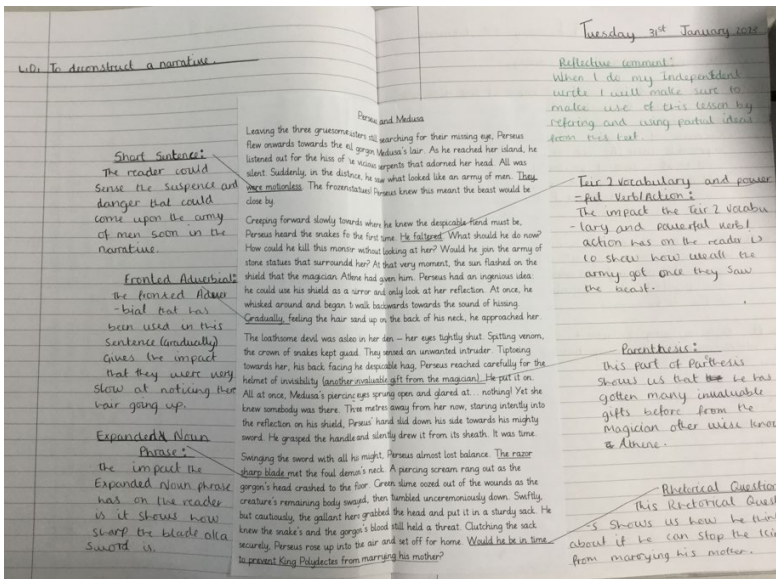 Tuesday 31st January
L.O: To deconstruct a narrative.
Reflective comment:
When I do my Independent
write I will make sure to
make use of this lesson by
refering and using partial ideas
from this text.
Short Sentence:
The reader could
sense the suspence and
danger that could
come upon the army
of men soon in the
narrative.
Fronted Adverbial:
The fronted Adver
-bial that has
been used in this
Sentence (Gradually)
Gives the impact
that they were very
slow at noticing their
hair going up.
Expanded Noun
Phrase:
the impact the
Expanded Noun phrase
has on the reader
is it shows how
sharp the blade aka
sword is.
Perseus and Medusa
Leaving the three gruesome sisters still searching for their missing eye, Perseus
flew onwards towards the evil gorgon Medusa's lair. As he reached her island, he
listened out for the hiss of the vicious serpents that adorned her head. All was
silent. Suddenly, in the distance, he saw what looked like an army of men. They
were motionless. The frozen statues! Perseus knew this meant the beast would be
close by.
Creeping forward slowly towards where he knew the despicable fiend must be,
Perseus heard the snakes for the first time. He faltered. What should he do now?
How could he kill this monster without looking at her? Would he join the army of
stone statues that surrounded her? At that very moment, the sun flashed on the
shield that the magician Athene had given him. Perseus had an ingenious idea
he could use his shield as a mirror and only look at her reflection. At once, he
whisked around and began to walk backwards towards the sound of hissing.
Gradually, feeling the hair stand up on the back of his neck, he approached her.
The loathsome devil was asleep in her den – her eyes tightly shut. Spitting venom,
the crown of snakes kept guard. They sensed an unwanted intruder. Tiptoeing
towards her, his back facing the despicable hag, Perseus reached carefully for the
helmet of invisibility (another invaluable gift from the magician). He put it on.
All at once, Medusa's piercing eyes sprung open and glared at... nothing! Yet she
knew somebody was there. Three metres away from her now, staring intently into
the reflection on his shield, Perseus' hand slid down his side towards his mighty
sword. He grasped the handle and silently drew it from its sheath. It was time.
Swinging the sword with all his might, Perseus almost lost balance. The razor
sharp blade met the foul demon's neck. A piercing scream rang out as the
gorgon's head crashed to the floor. Green slime oozed out of the wounds as the
creature's remaining body swayed, then tumbled unceremoniously down. Swiftly,
but cautiously, the gallant hero grabbed the head and put it in a sturdy sack. He
knew the snake's and the gorgon's blood still held a threat. Clutching the sack
securely, Perseus rose up into the air and set off for home. Would he be in time
to prevent King Polydectes from marrying his mother?
Teir 2 vocabulary and power
-ful Verb/Action:
The impact the Teir 2 Vocabu
-lary and powerful verb/
action has on the reader is
to show how weak the
army got once they saw
the beast.
Parenthesis:
This part of Parthesis
shows us that he has
gotten many invaluable
gifts before from the
magician other wise know
Athene.
Rhetorical Question
This Rhetorical Quest
s shows us how he think
about if he can stop the Kin
from marrying his mother.